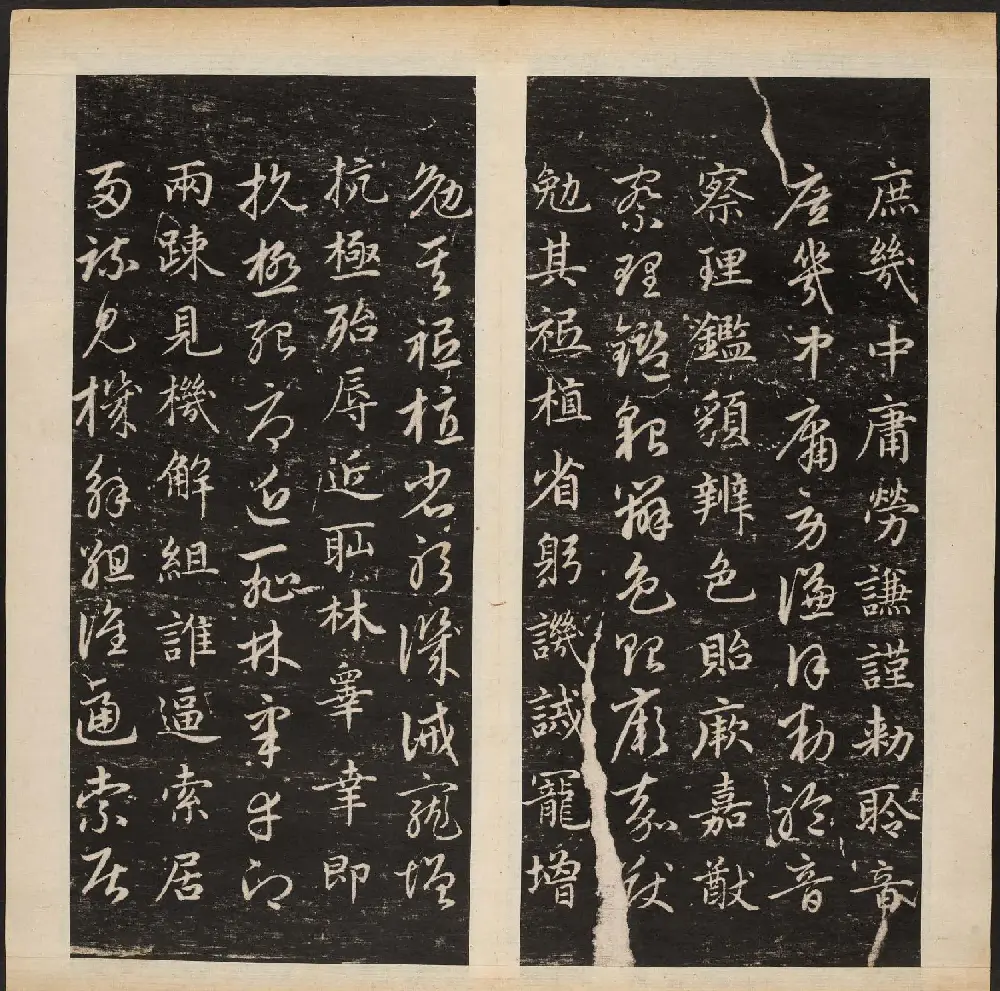 庶幾中庸勞謙謹勅聆音
庶幾中庸勞謙謹勅聆音
察理鑑䫉辨色貽厥嘉猷
察理鑑䫉辨色貽厥嘉猷
勉其祗植省躬譏誡寵增
勉其祗植省躬譏誡寵增
抗極殆辱近耻林皋幸即
抗極殆辱近耻林皋幸即
兩疎見機解組誰逼索居
兩疎見機解組誰逼索居